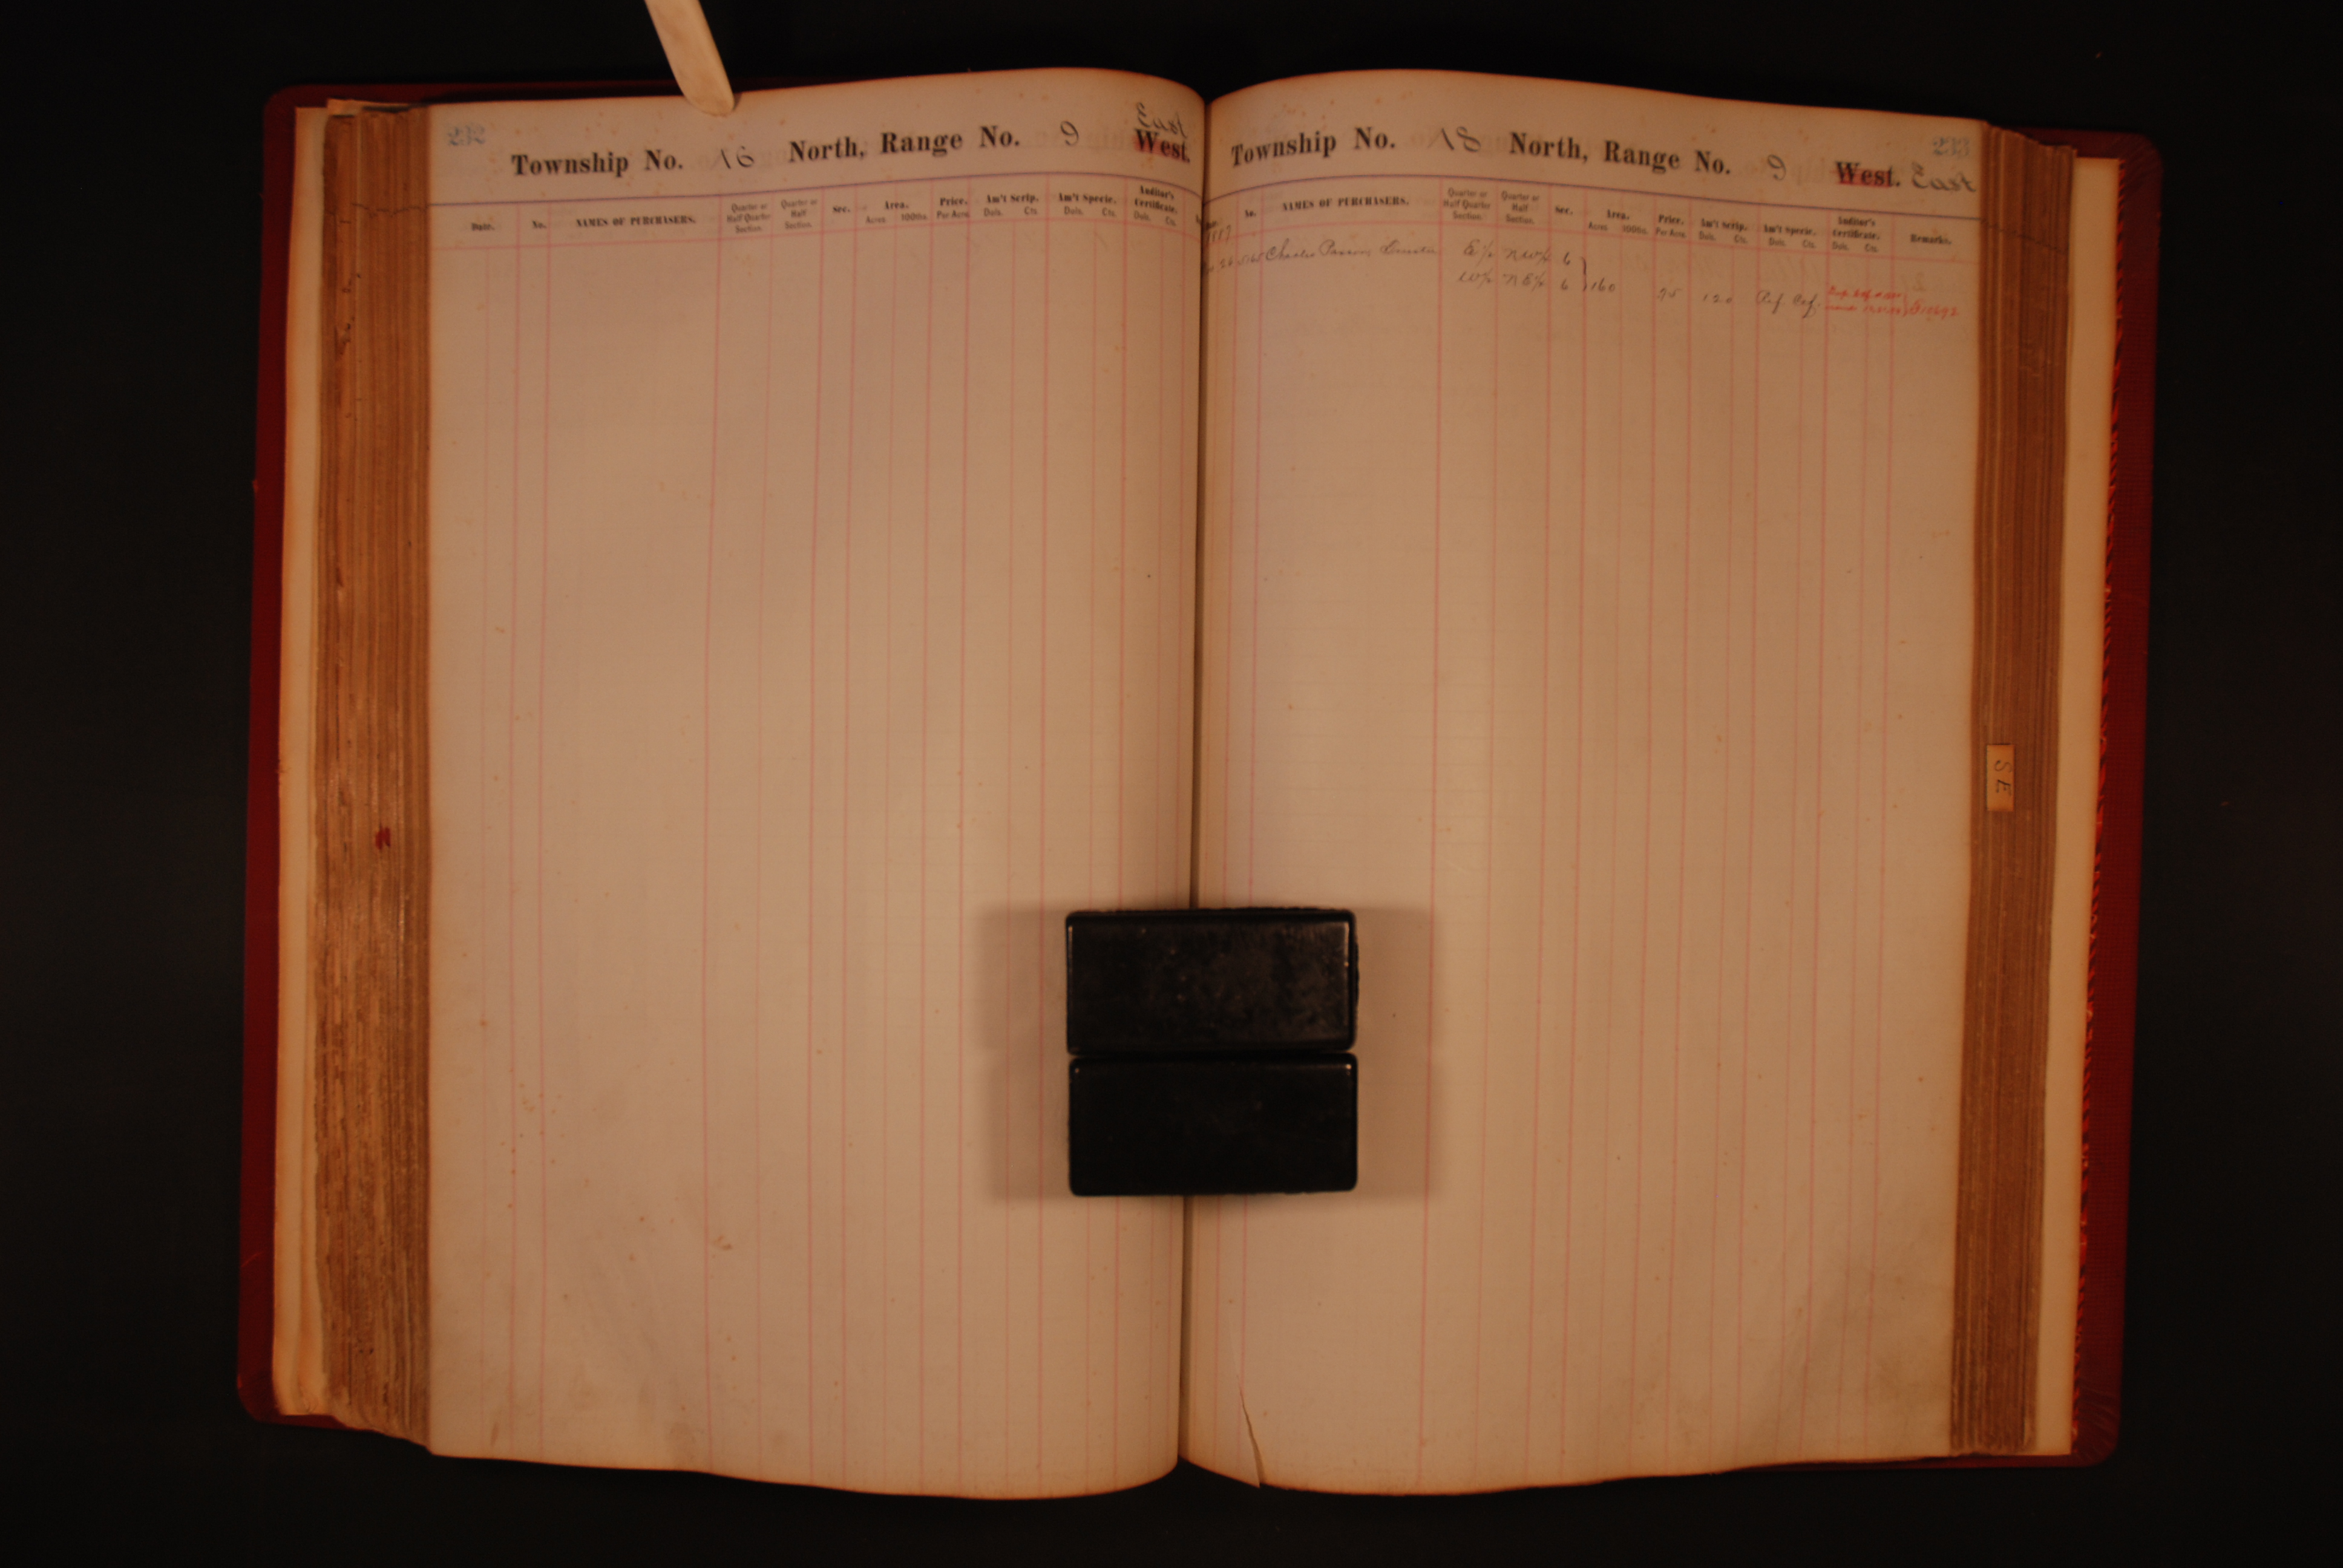 232
East
Township No. 16 North, Range No. 9 West.
Date. No. NAMES OF PURCHASERS. Quarter or Half Quarter Section. Quarter or Half Section. Sec. Area. Acres 100ths Price. Per Acre Am't Scrip. Dols. Cts. Am't Specie. Dols. Cts. Auditor's Certificate. Dols. Cts.
233
Township No. 18 North, Range No. 9 West. East
No. NAMES OF PURCHASERS. Quarter or Half Quarter Section. Quarter or Half Section. Sec. Area. Acres 100ths Price. Per Acre Am't Scrip. Dols. Cts. Am't Specie. Dols. Cts. Auditor's Certificate. Dols. Cts. Remarks.
Charles Parsons E½ NW¼ 6
W½ NE¼ 6 160 75 120
SE